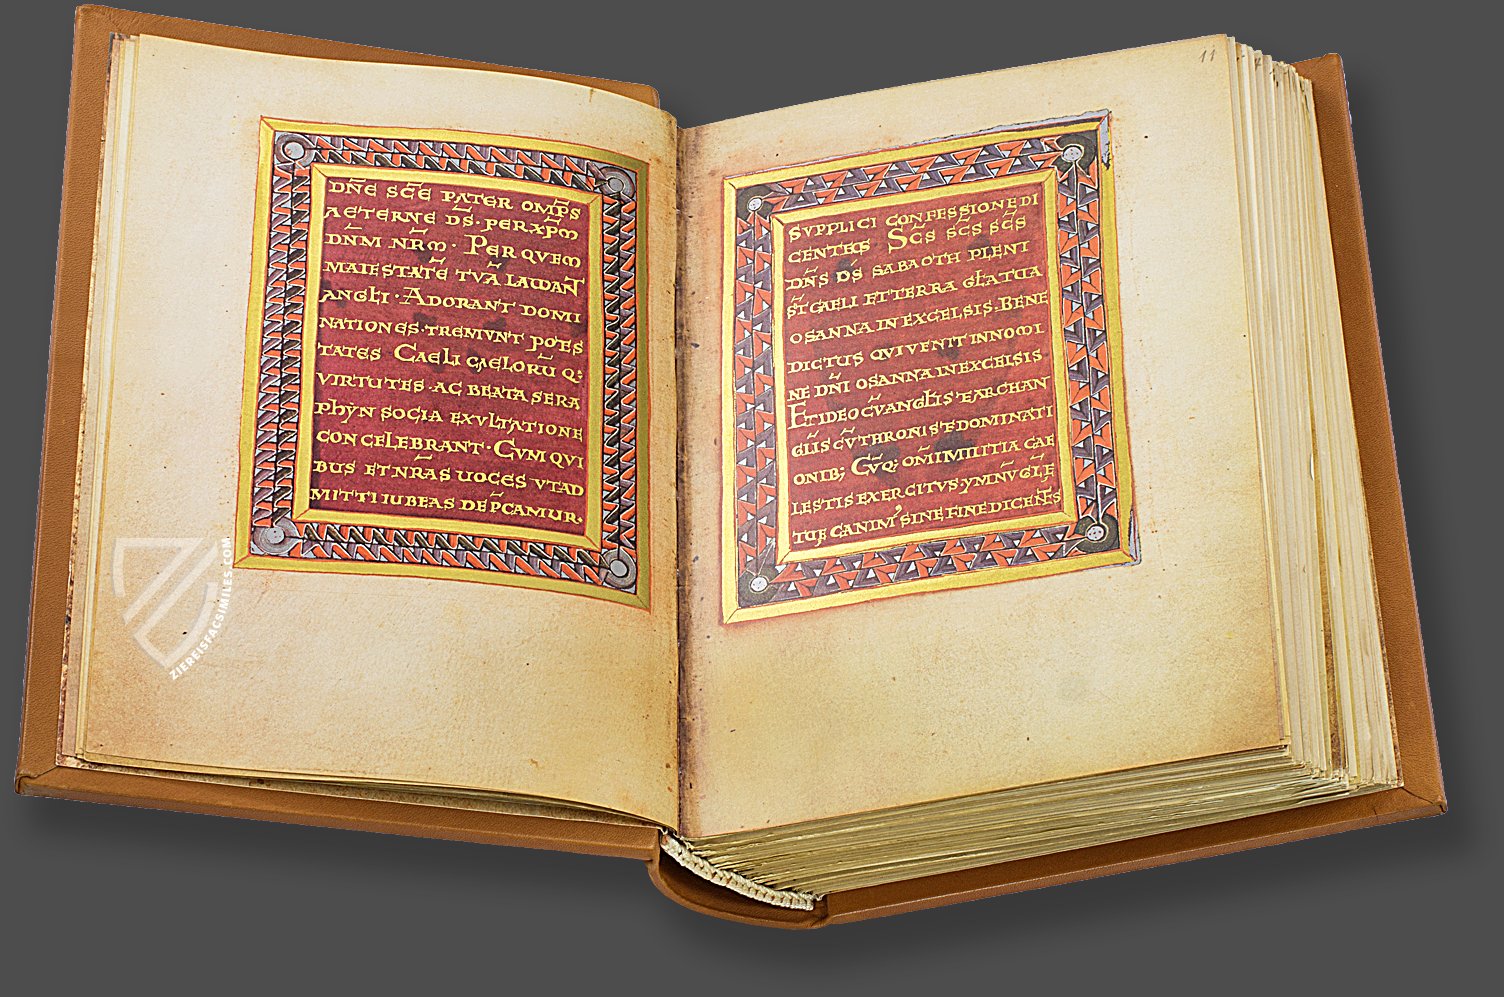 DÑE SC̄E PATER OMP̄S
AETERNE DS̄·PER XP̄M
DNM̄ NRM̄·PER QUEM
MAIESTATĒ TVĀ LAUDANT
ANGLI·ADORANT DOMI
NATIONES·TREMVNT POTES
TATES CAELI CAELORŪ Q;
VIRTUTES·AC BEATA SERA
PHYN SOCIA EXVLTATIONE
CONCELEBRANT·CUM QVI
BUS ET NR̄AS UOCES VT AD
MITTI IUBEAS DEP̄CAMUR·
11
SVPPLICI CONFESSIONE DI
CENTES SC̄S SC̄S SC̄S
DN̄S DS̄ SABAOTH PLENI
ST̄ CAELI ET TERRA GLĀ TUA
OSANNA IN EXCELSIS·BENE
DICTUS QVI VENIT IN NOMI
NE DNĪ OSANNA IN EXCELSIS
ET IDEO CV̄ ANGLIS ET ARCHAN
GLIS CV̄ THRONIS ET DOMINATI
ONIB; CV̄Q; OMĪ MILITIA CAE
LESTIS EXERCITVS YMNV̄ GLĘ
TUĘ CANIM' SINE FINE DICENTES
ZIEREISFACSIMILES.COM